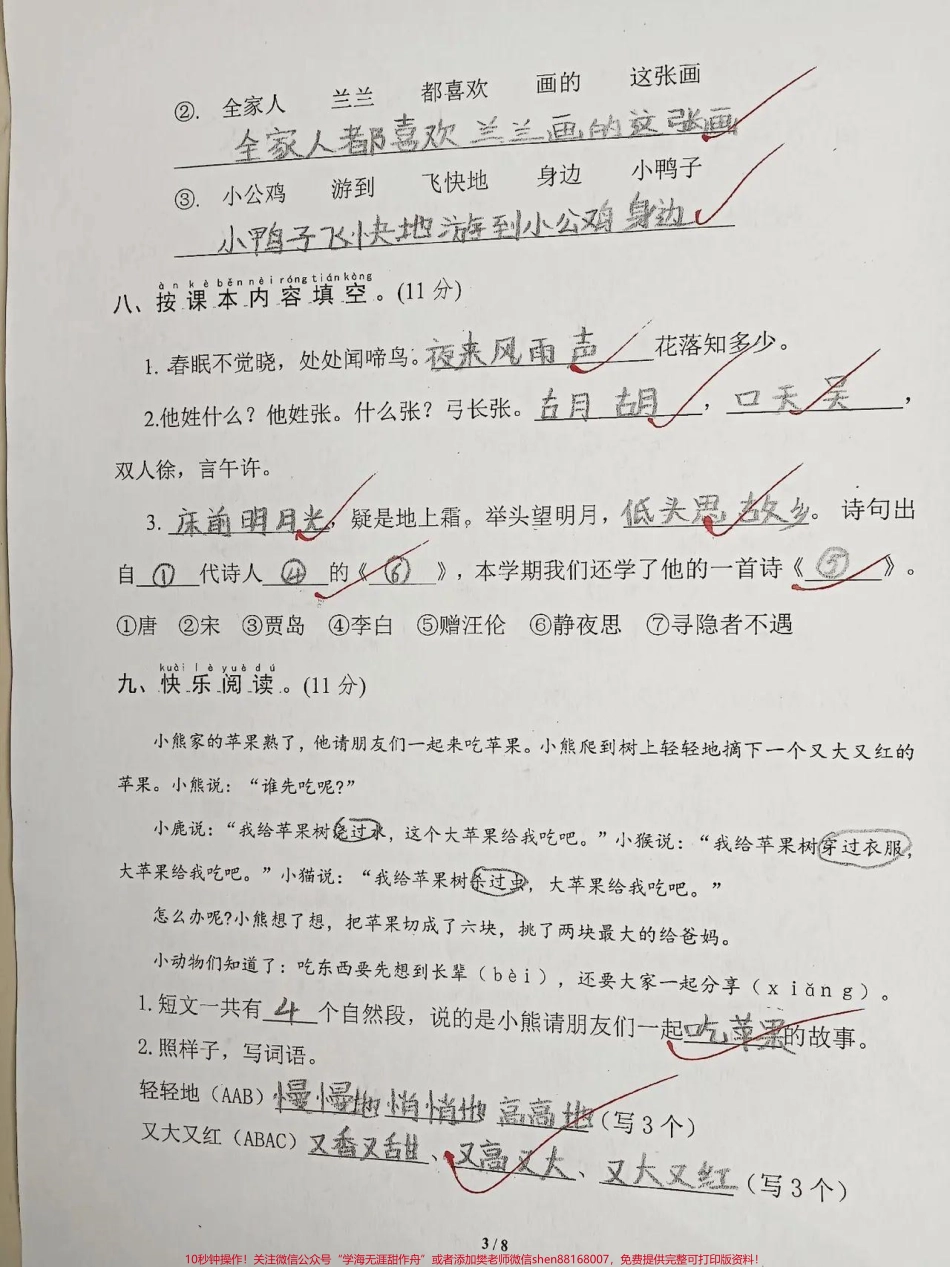 ②. 全家人 兰兰 都喜欢 画的 这张画
全家人都喜欢兰兰画的这张画
③. 小公鸡 游到 飞快地 身边 小鸭子
小鸭子飞快地游到小公鸡身边
àn kè běn nèi róng tián kòng
八、按课本内容填空。(11分)
1. 春眠不觉晓，处处闻啼鸟。夜来风雨声 花落知多少。
2.他姓什么？他姓张。什么张？弓长张。古月胡，口天吴，
双人徐，言午许。
3. 床前明月光，疑是地上霜。举头望明月，低头思故乡。诗句出
自①代诗人④的《⑥》，本学期我们还学了他的一首诗《⑤》。
①唐 ②宋 ③贾岛 ④李白 ⑤赠汪伦 ⑥静夜思 ⑦寻隐者不遇
kuài lè yuè dú
九、快乐阅读。(11分)
小熊家的苹果熟了，他请朋友们一起来吃苹果。小熊爬到树上轻轻地摘下一个又大又红的
苹果。小熊说：“谁先吃呢?”
小鹿说：“我给苹果树浇过水，这个大苹果给我吃吧。”小猴说：“我给苹果树穿过衣服，
大苹果给我吃吧。”小猫说：“我给苹果树杀过虫，大苹果给我吃吧。”
怎么办呢?小熊想了想，把苹果切成了六块，挑了两块最大的给爸妈。
小动物们知道了：吃东西要先想到长辈（bèi），还要大家一起分享（xiǎng）。
1.短文一共有4个自然段，说的是小熊请朋友们一起吃苹果的故事。
2.照样子，写词语。
轻轻地（AAB）慢慢地 悄悄地 高高地（写3个）
又大又红（ABAC）又香又甜、又高又大、又大又红（写3个）
3/8
10秒钟操作！关注微信公众号“学海无涯甜作舟”或者添加樊老师微信shen88168007，免费提供完整可打印版资料！